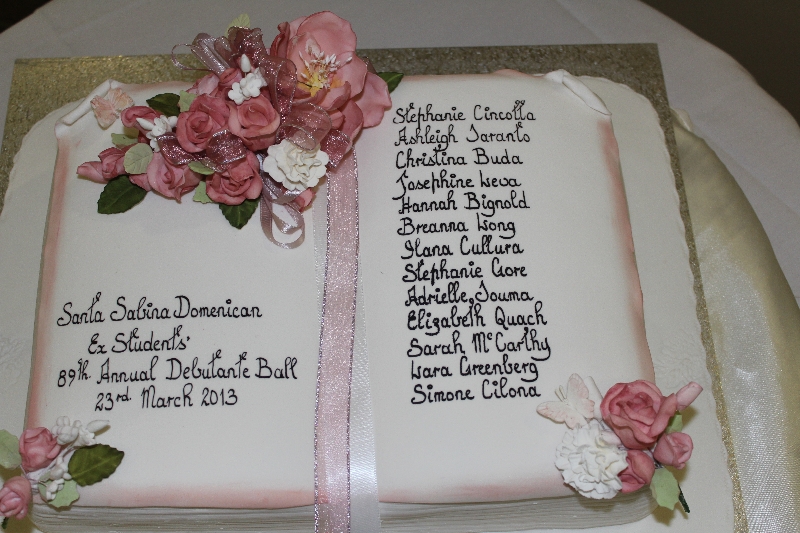 Santa Sabina Domenican
Ex Students'
89th. Annual Debutante Ball
23rd March 2013
Stephanie Cincotta
Ashleigh Taranto
Christina Buda
Josephine Leva
Hannah Bignold
Breanna Wong
Ilana Cullura
Stephanie Gore
Adrielle Touma
Elizabeth Quach
Sarah McCarthy
Lara Greenberg
Simone Cilona